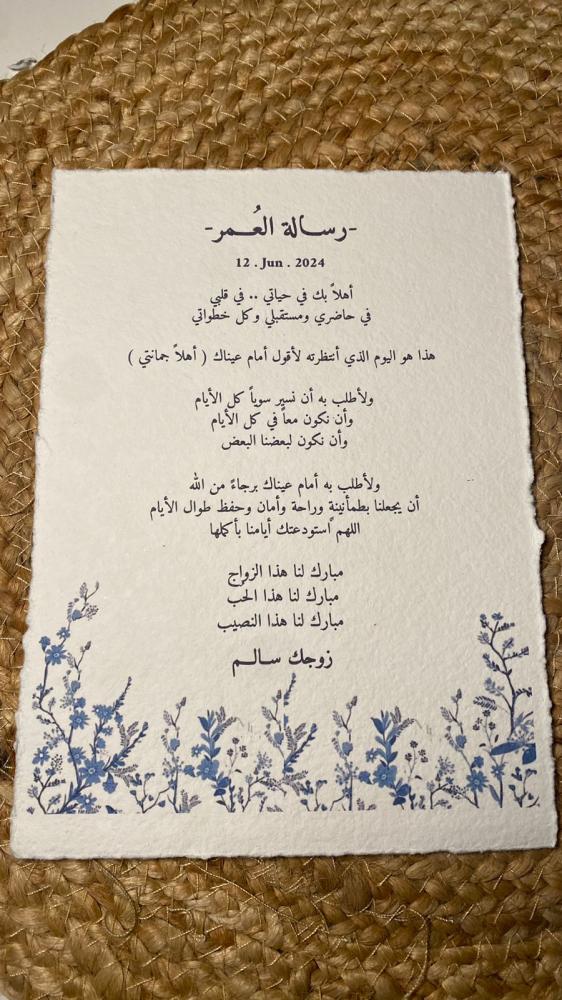 -رســالة العُـــمر-
12 . Jun . 2024
أهلاً بك في حياتي .. في قلبي
في حاضري ومستقبلي وكل خطواتي
هذا هو اليوم الذي أنتظرته لأقول أمام عيناك ( أهلاً جمانتي )
ولأطلب به أن نسير سوياً كل الأيام
وأن نكون معاً في كل الأيام
وأن نكون لبعضنا البعض
ولأطلب به أمام عيناك برجاءً من الله
أن يجعلنا بطمأنينةٍ وراحة وأمان وحفظ طوال الأيام
اللهم استودعتك أيامنا بأكملها
مبارك لنا هذا الزواج
مبارك لنا هذا الحُب
مبارك لنا هذا النصيب
زوجك ســالــم